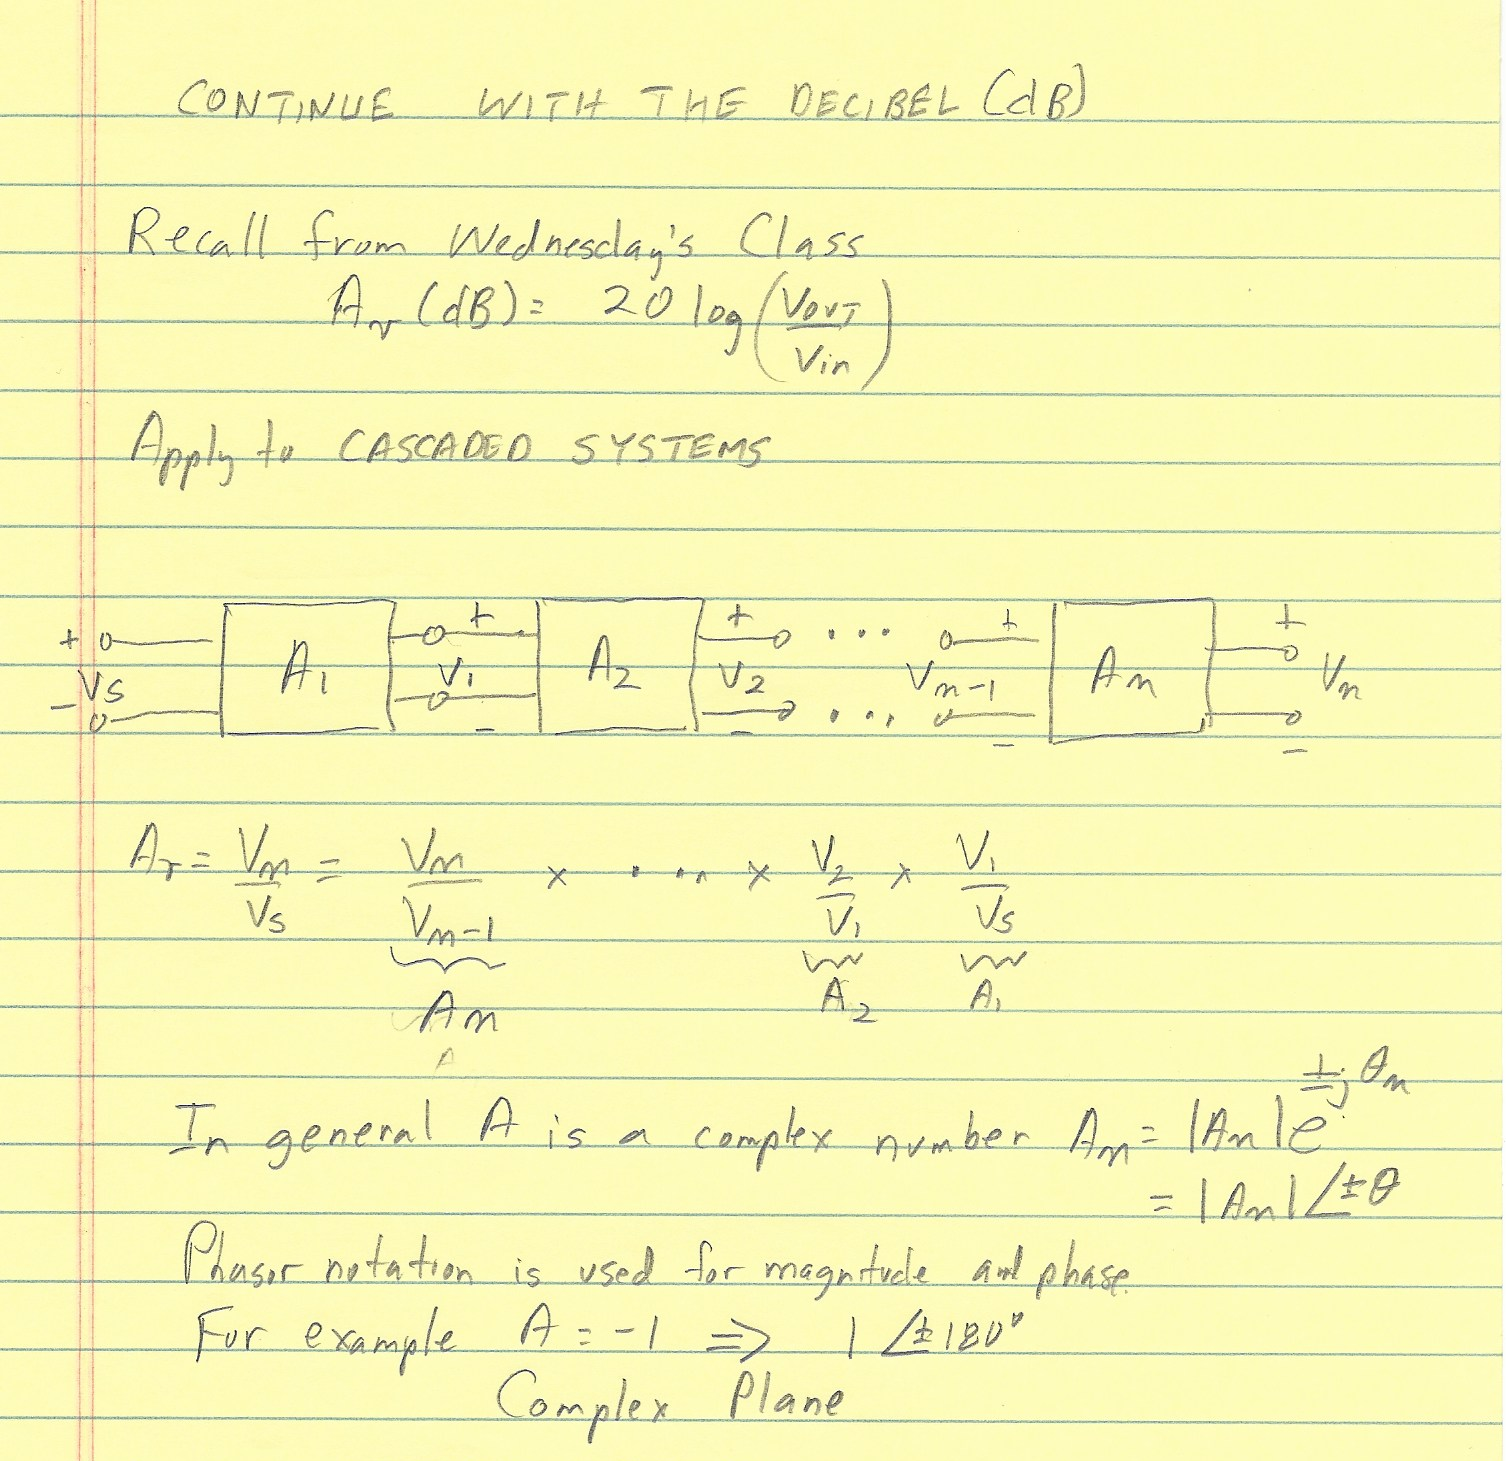 CONTINUE WITH THE DECIBEL (dB)
Recall from Wednesday's Class
Av (dB) = 20 log (VOUT / Vin)
Apply to CASCADED SYSTEMS
+ + + + +
A1 V1 A2 V2 ... Vn-1 An Vn
VS
- - - ... - -
AT = Vn / VS = Vn / Vn-1 × ..... × V2 / V1 × V1 / VS
An A2 A1
In general A is a complex number An = |An| e^±jθn
= |An| ∠±θ
Phasor notation is used for magnitude and phase.
For example A = -1 ⇒ 1 ∠±180°
Complex Plane